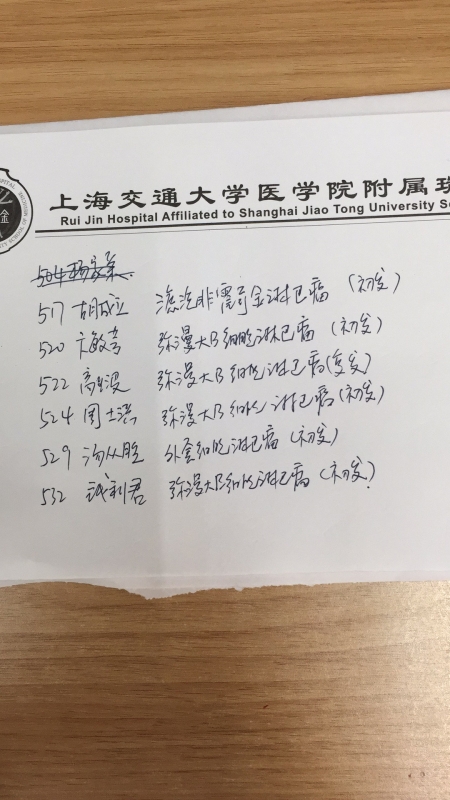 上海交通大学医学院附属瑞
Rui Jin Hospital Affiliated to Shanghai Jiao Tong University Sc
504
517 胡成立 滤泡非霍奇金淋巴瘤 (初发)
520 敏 弥漫大B细胞淋巴瘤 (初发)
522 高 弥漫大B细胞淋巴瘤(复发)
524 周士 弥漫大B细胞淋巴瘤(初发)
529 外套细胞淋巴瘤 (初发)
532 钱利君 弥漫大B细胞淋巴瘤 (初发)